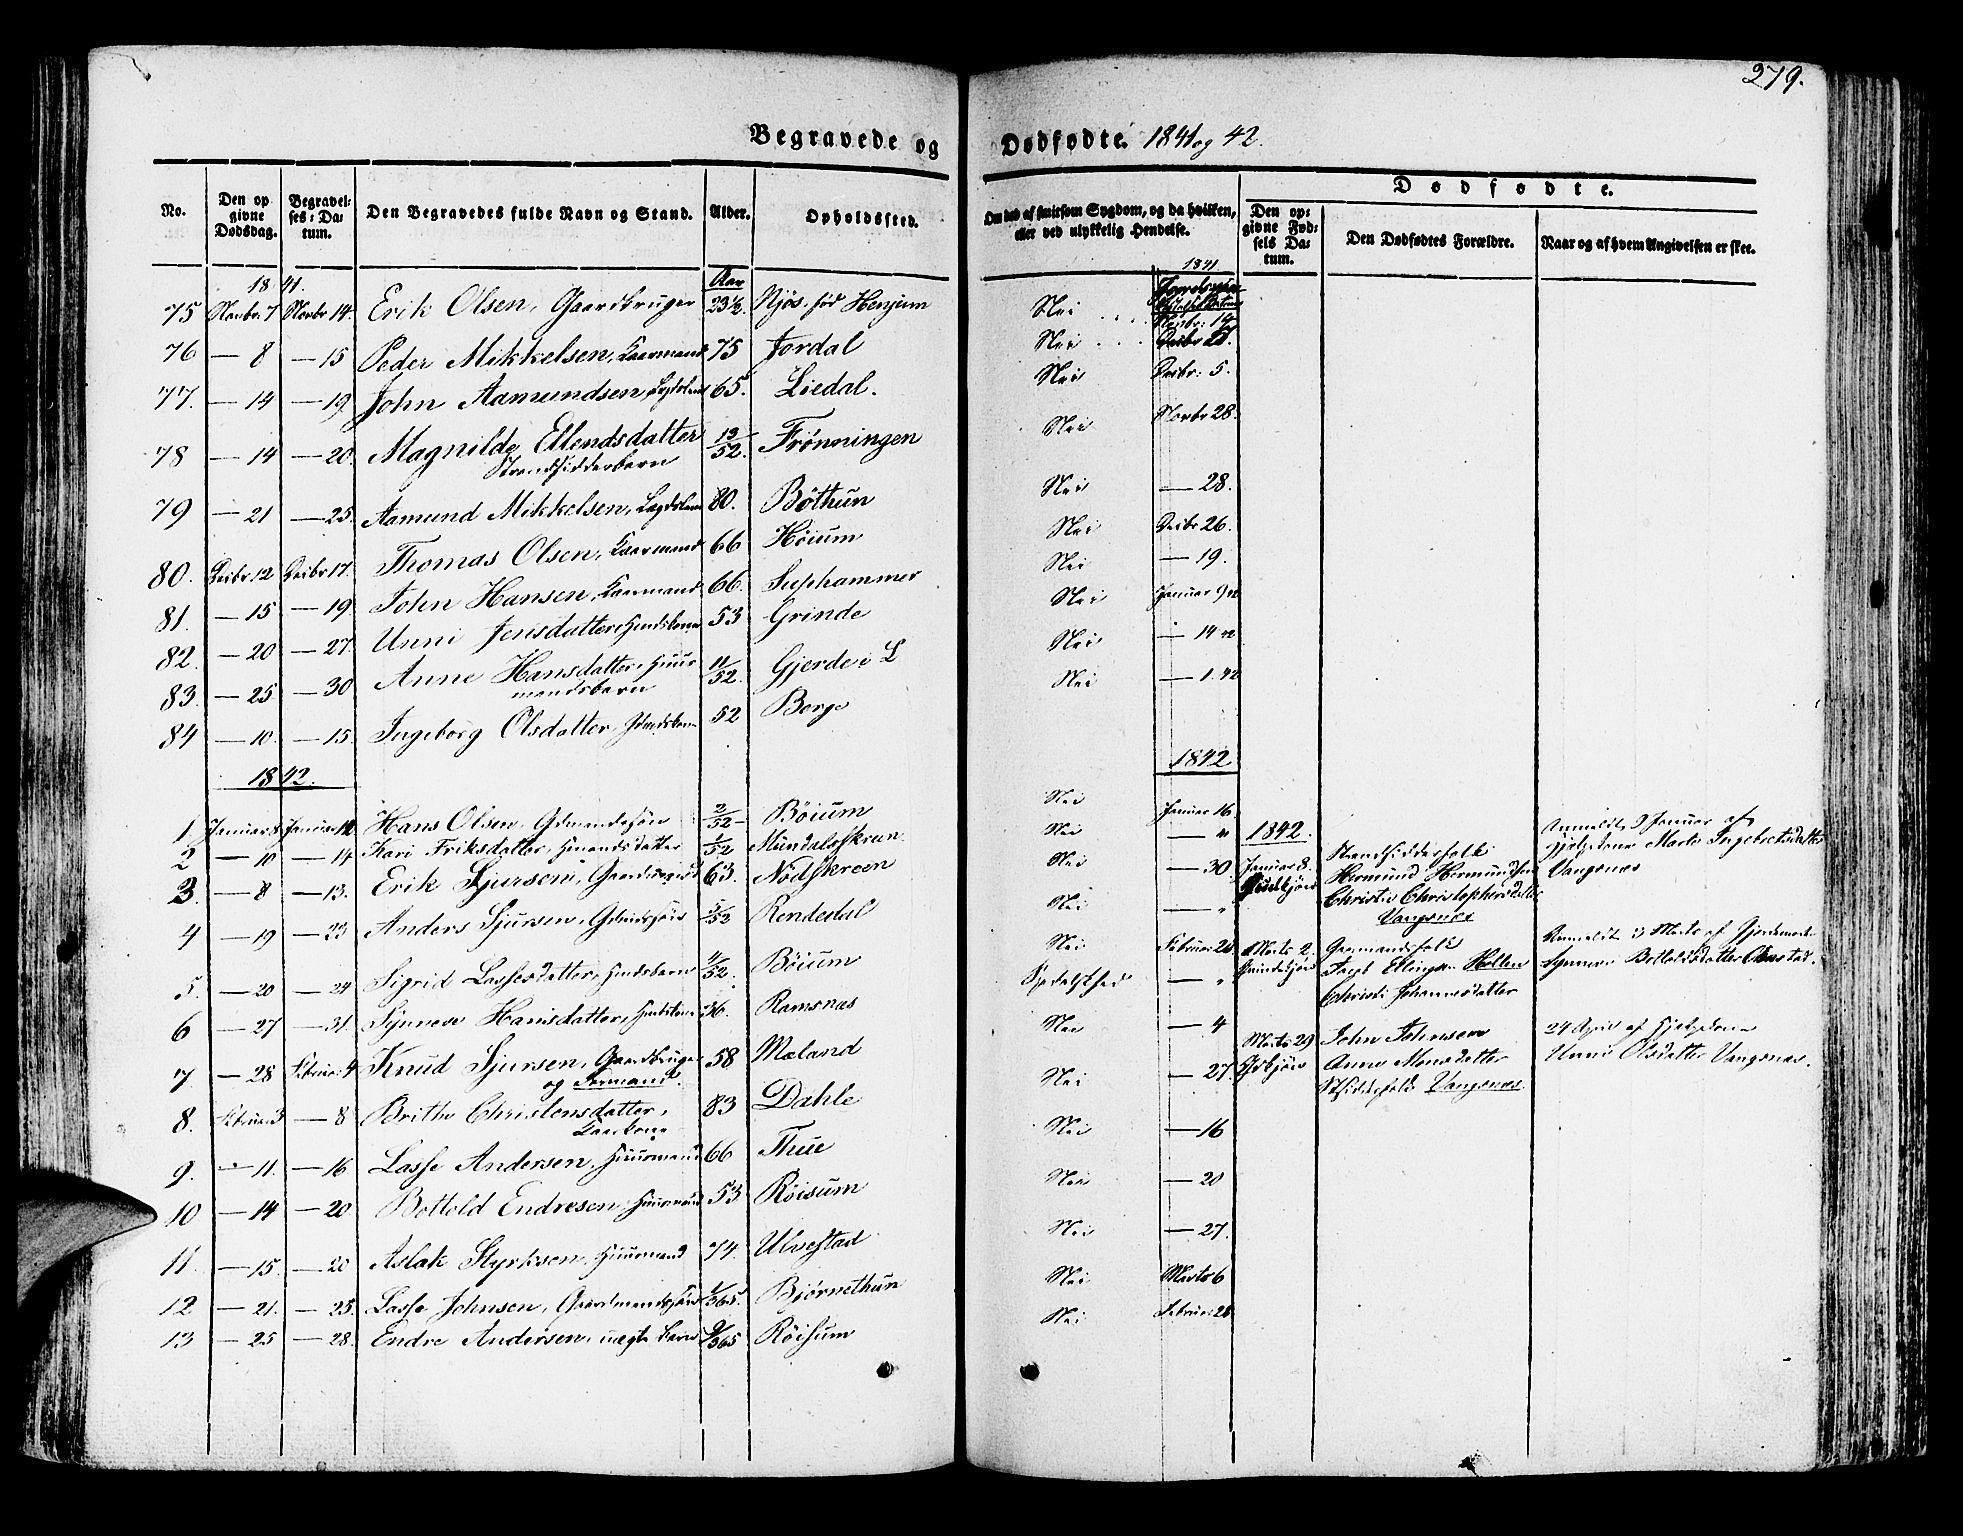 279.
Begravede og Dødfødte. 1841 og 42.
No. Den opgivne Dødsdag. Begravelses-Datum. Den Begravedes fulde Navn og Stand. Alder. Opholdssted.
Om død af smitsom Sygdom, og da hvilken, eller ved ulykkelig Hendelse.
Dødfødte.
Den opgivne Fødsels Datum. Den Dødfødtes Forældre. Naar og af hvem Angivelsen er skee.
1841. Aar 1841
75 Novbr. 7 Novbr 14. Erik Olsen, Gaardbruger 23½ Njøs, fød Henjum Nei Novbr: 14
76 — 8 — 15 Peder Mikkelsen, Kaarmand 75 Jordal Nei Decbr 28.
77. — 14 — 19 John Aamundsen, Lægdslem 65. Liedal. Nei Decbr: 5.
78 — 14 — 20. Magnilde Ellendsdatter 12/52. Frønningen Nei Novbr 28.
Strandsidderbarn
79 — 21 — 25. Aamund Mikkelsen, Lægdslem 80. Bøthun Nei — 28.
80. Decbr. 12 Decbr 17. Thomas Olsen, Kaarmand 66 Høium Nei Decbr 26.
81. — 15 — 19 John Hansen, Kaarmand 66. Suphammer Nei — 19.
82. — 20 — 27. Unni Jensdatter, 53 Grinde Nei Januar 9 42
83. — 25 — 30 Anne Hansdatter, Huus- 11/52. Gjerde i L Nei — 14 42
mandsbarn
84 — 10. — 15. Ingeborg Olsdatter 52 Berge Nei — 1. 42
1842. 1842
1 Januar 8 Januar 12 Hans Olsen, Gdmandssøn 2/52 Bøium Nei Januar 16.
2 — 10 — 14 Kari Eriksdatter, Hmandsdatter 1/52 Nei — "
3. — 8 — 13. Erik Sjursen, 63. Nødskreen Nei — 30
4 — 19 — 23 Anders Sjursen, Gdmdssøn 5/52 Rendedal Nei — "
5. — 20 — 24 Sigrid Lassesdatter, Hmdsbarn 4/52. Bøium Nei Februar 20
6 — 27 — 31. Synneve Hansdatter, 36. Ramsnæs Spedalskhed — "
7 — 28 Februar 4 Knud Sjursen, Gaardbruger 58 Mæland Nei — 4
og Formand.
8. Februar 3 — 8 Brithe Christensdatter, 83 Dahle Nei — 27.
Kaarkone
9. — 11. — 16 Lasse Andersen, Huusmand 66 Thue Nei — 16
10 — 14 — 20 Bottold Endresen Huusmand 53 Røisum Nei — 20
11. — 15. — 20 Aslak Styrksen, Huusmand 74. Ulvestad Nei — 27.
12 — 21. — 25. Lasse Johnsen, Gaardmandssøn 1/365. Bjørnethun Nei Marts 6
13 — 25 — 28. Endre Andersen, uægte Barn 9/365 Røisum Nei Februar 28
1842.
Januar 8. Strandsidderfolk:
Hermund Hermundsen
Christie Christophersdatter
Vangsnæs
Anmeldt 9 Januar af
Marta Ingebretsdatter
Vangsnæs
Marts 2. Gaardmandsfolk
Jacob Ellingsen Hellen
Christi Johannesdatter
Anmeldt 3 Marts af Gjordemoder
Synneve Bottolsdatter
Marts 29 John Johnsen
Anne Monsdatter
Vangsnæs.
24 April af
Unni Olsdatter Vangsnæs.